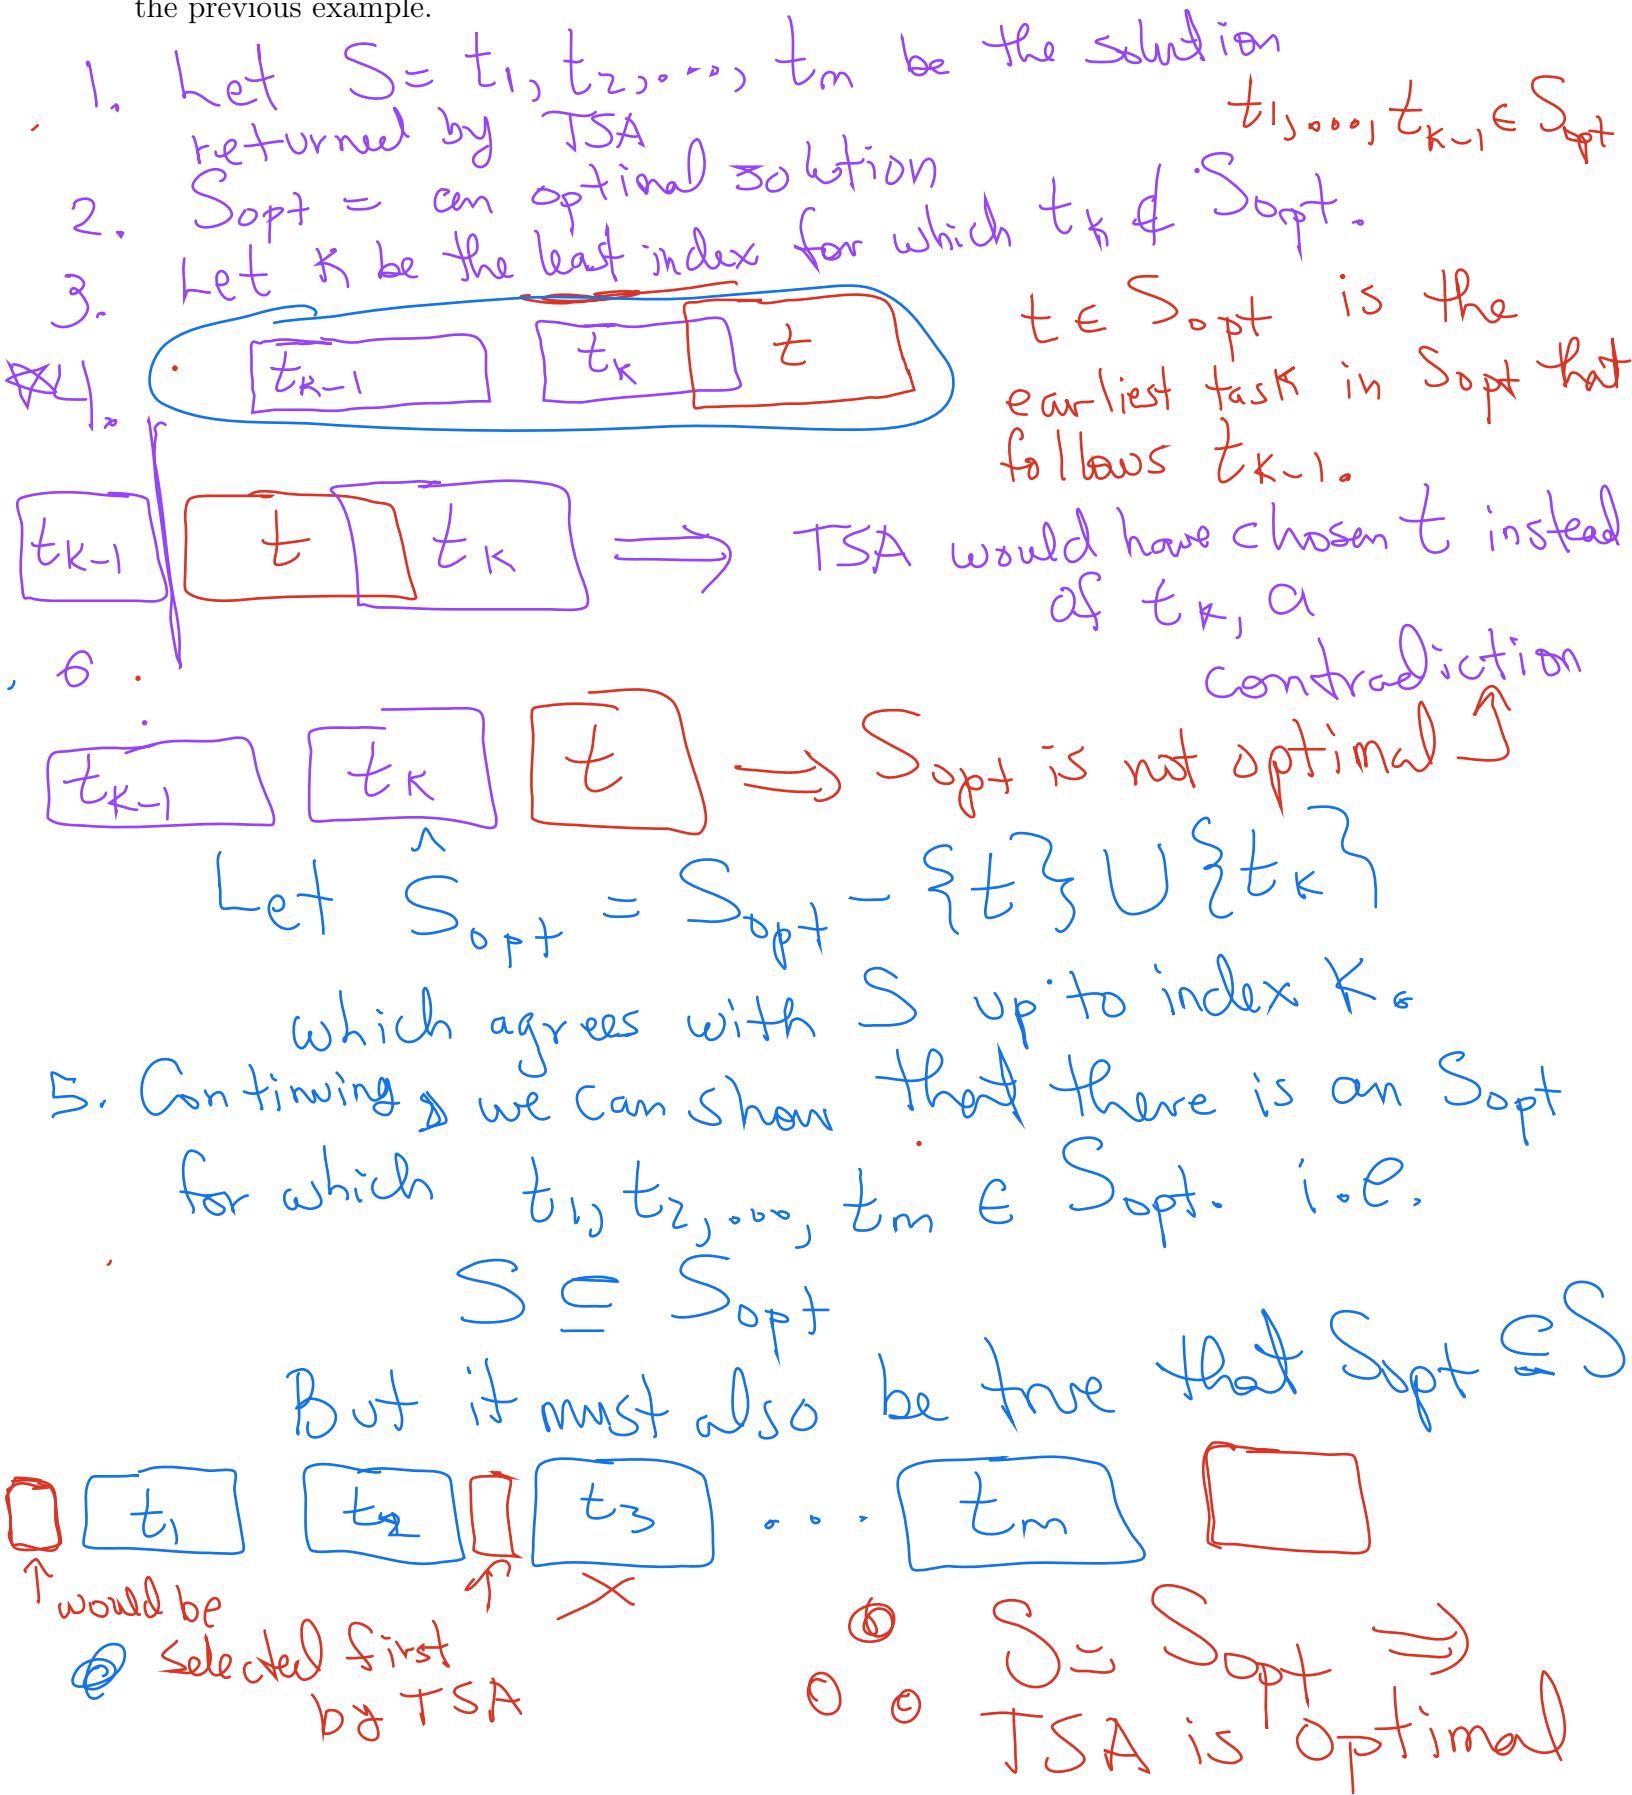 the previous example.
1. Let S = t1, t2, ..., tm be the solution
returned by TSA
t1, ..., tk-1 ∈ Sopt
2. Sopt = an optimal solution
3. Let k be the least index for which tk ∉ Sopt.
☆4.
tk-1 tk t
t ∈ Sopt is the
earliest task in Sopt that
follows tk-1.
tk-1 t tk ⟹ TSA would have chosen t instead
of tk, a
contradiction
6
tk-1 tk t ⟹ Sopt is not optimal
Let Ŝopt = Sopt - {t} ∪ {tk}
which agrees with S up to index k.
5. Continuing, we can show that there is an Sopt
for which t1, t2, ..., tm ∈ Sopt. i.e.
S ⊆ Sopt
But it must also be true that Sopt ⊆ S
t1 t2 t3 ... tm
↑ ↑ X
would be
selected first
by TSA
∴ S = Sopt ⟹
TSA is optimal